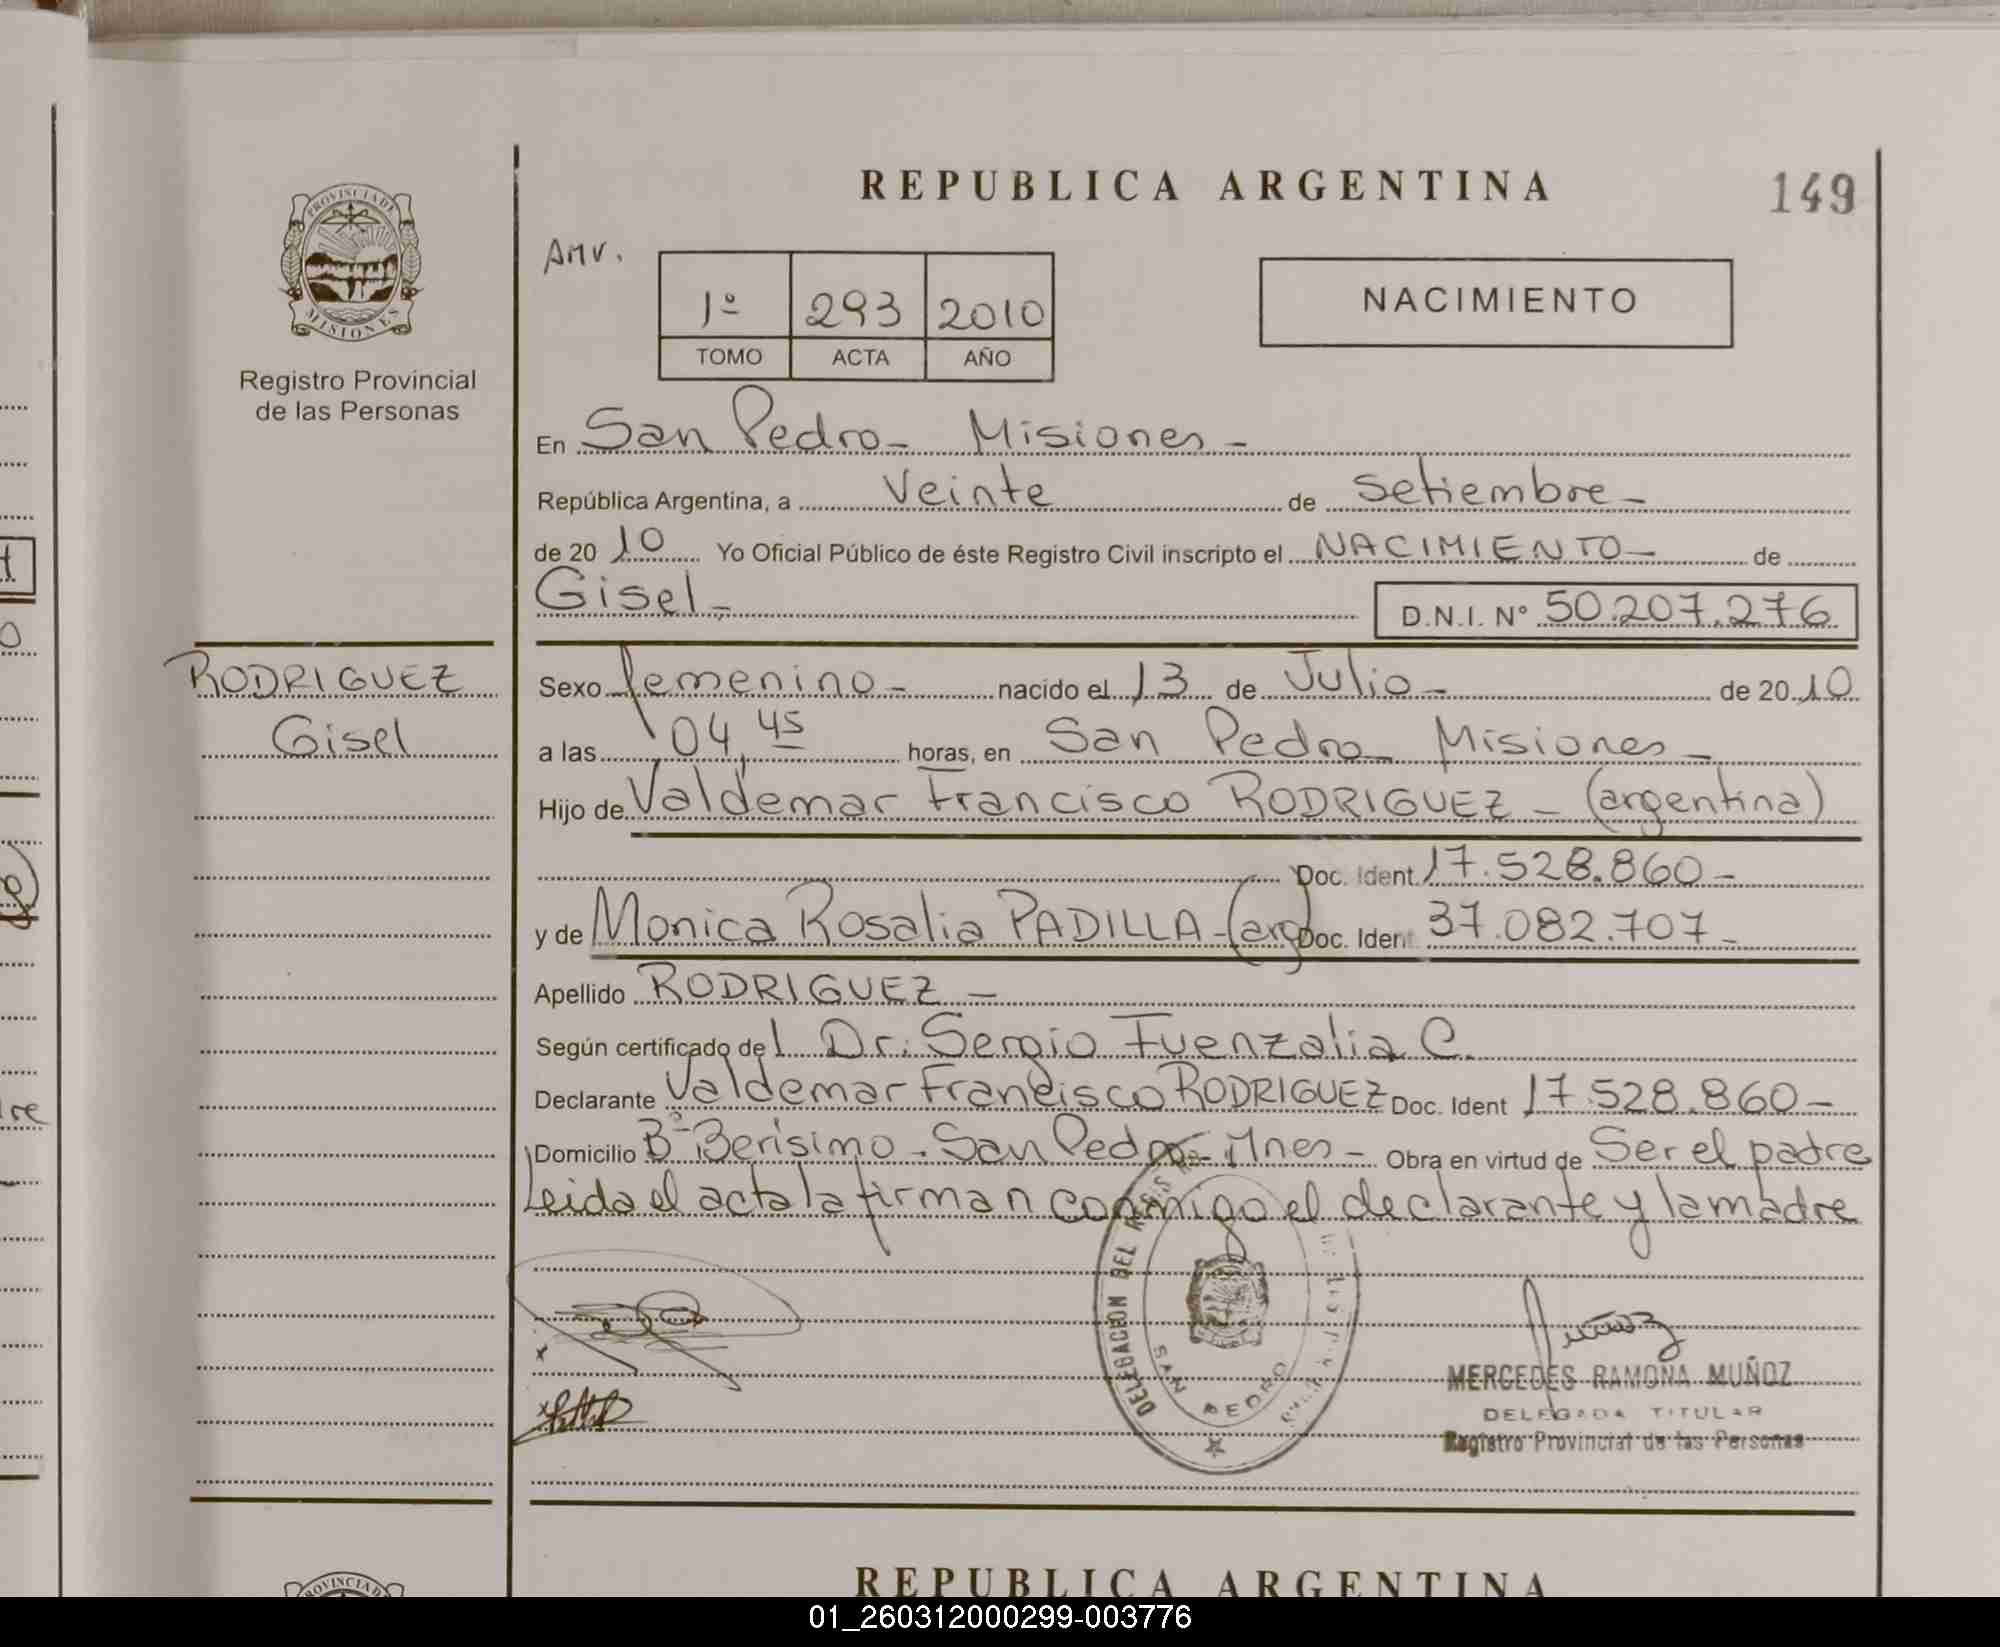 REPUBLICA ARGENTINA
149
PROVINCIA DE
MISIONES
Registro Provincial
de las Personas
AMV.
1º 293 2010
TOMO ACTA AÑO
NACIMIENTO
En San Pedro - Misiones -
República Argentina, a Veinte de Setiembre -
de 20 10 Yo Oficial Público de éste Registro Civil inscripto el NACIMIENTO - de
Gisel - D.N.I. Nº 50.207.276
RODRIGUEZ
Gisel
Sexo femenino - nacido el 13 de Julio - de 20 10
a las 04,45 horas, en San Pedro - Misiones -
Hijo de Valdemar Francisco RODRIGUEZ - (argentina)
Doc. Ident. 17.528.860 -
y de Monica Rosalia PADILLA - (arg) Doc. Ident 37.082.707 -
Apellido RODRIGUEZ -
Según certificado del Dr. Sergio Fuenzalia C.
Declarante Valdemar Francisco RODRIGUEZ Doc. Ident 17.528.860 -
Domicilio Bº Berisimo - San Pedro - Mnes - Obra en virtud de Ser el padre
Leida el acta la firman conmigo el declarante y la madre
DELEGACION DEL
SAN PEDRO
Muñoz
MERCEDES RAMONA MUÑOZ
DELEGADA TITULAR
Registro Provincial de las Personas
PROVINCIA DE
REPUBLICA ARGENTINA
01_260312000299-003776